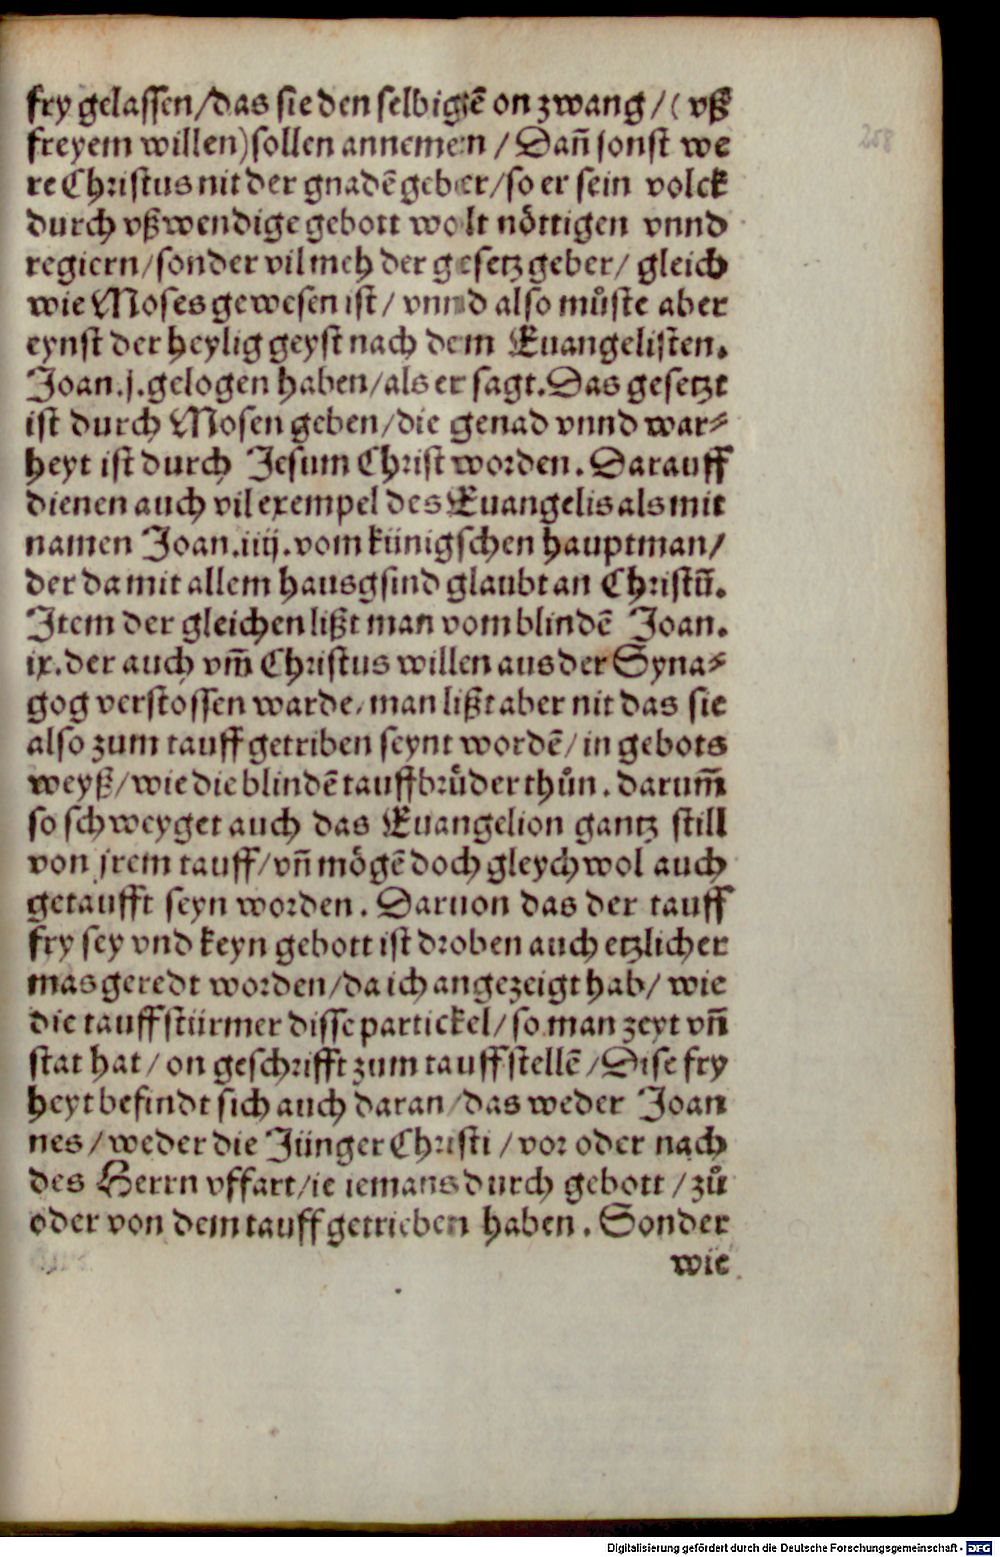 fry gelassen/das sie den selbigẽ on zwang/(vß
freyem willen)sollen annemen/Dañ sonst we
re Christus nit der gnadẽ geber/so er sein volck
durch vßwendige gebott wolt nöttigen vnnd
regiern/sonder vil meh der gesetzgeber/gleich
wie Moses gewesen ist/vnnd also můste aber
eynst der heylig geyst nach dem Euangelisten.
Joan.j.gelogen haben/als er sagt.Das gesetzt
ist durch Mosen geben/die genad vnnd war⸗
heyt ist durch Jesum Christ worden.Darauff
dienen auch vil exempel des Euangelis als mit
namen Joan.iiij.vom künigschen hauptman/
der da mit allem hausgsind glaubt an Christũ.
Item der gleichen lißt man vom blindẽ Joan.
ix.der auch vm̃ Christus willen aus der Syna⸗
gog verstossen warde/man lißt aber nit das sie
also zum tauff getriben seynt wordẽ/in gebots
weyß/wie die blindẽ tauffbrůder thůn.darum̃
so schweyget auch das Euangelion gantz still
von jrem tauff/vñ mögẽ doch gleychwol auch
getaufft seyn worden.Daruon das der tauff
fry sey vnd keyn gebott ist droben auch etzlicher
mas geredt worden/da ich angezeigt hab/wie
die tauffstürmer disse partickel/so man zeyt vñ
stat hat/on geschrifft zum tauff stellẽ/Dise fry
heyt befindt sich auch daran/das weder Joan
nes/weder die Jünger Christi/vor oder nach
des Herrn vffart/ie iemans durch gebott/zů
oder von dem tauff getrieben haben.Sonder
wie
208
Digitalisierung gefördert durch die Deutsche Forschungsgemeinschaft - DFG